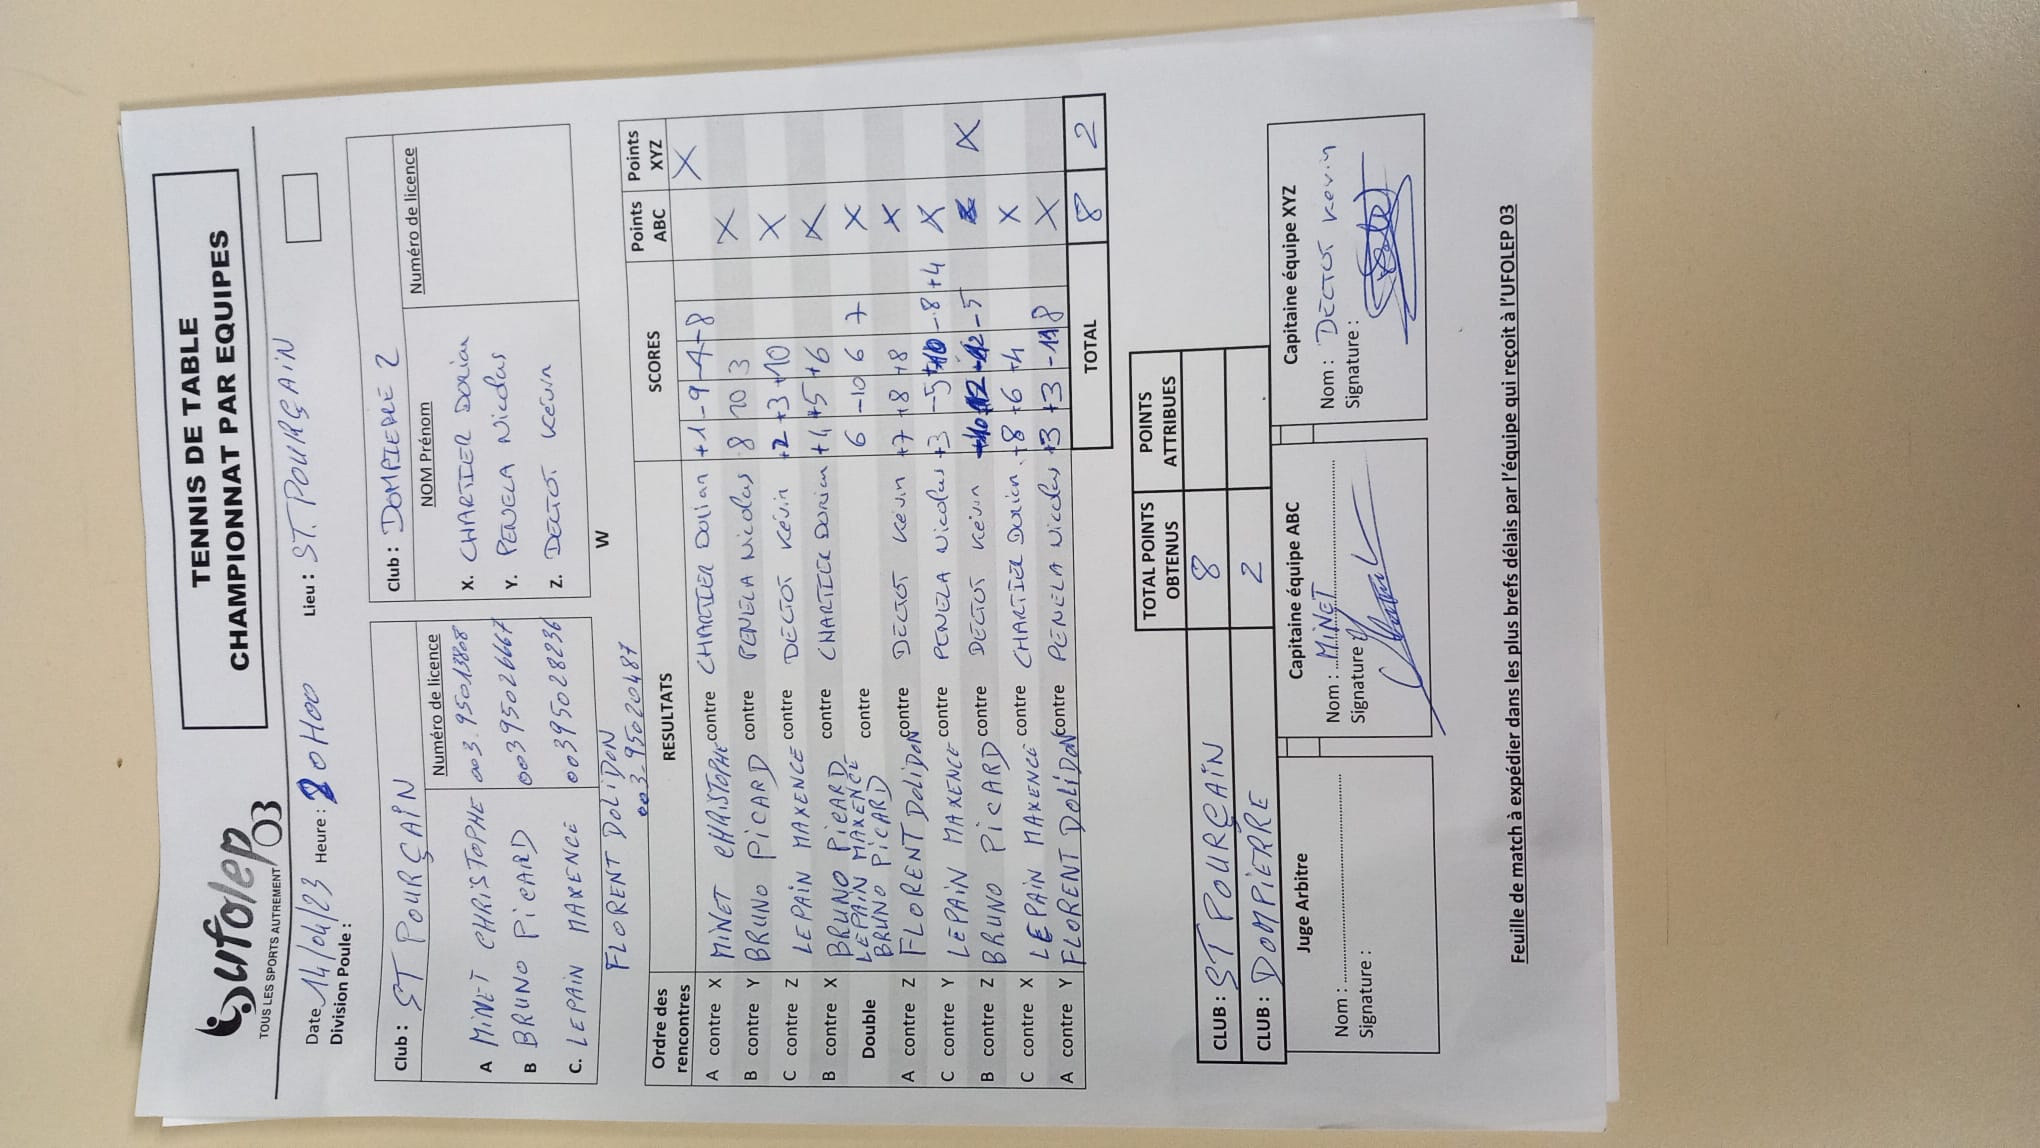 ufolep 03
TOUS LES SPORTS AUTREMENT
TENNIS DE TABLE
CHAMPIONNAT PAR EQUIPES
Date 14/04/23 Heure : 20H00 Lieu : ST. POURÇAIN
Division Poule :
Club : ST POURÇAIN
Numéro de licence
A MINET CHRISTOPHE 003.95013808
B BRUNO PICARD 00395026667
C. LEPAIN MAXENCE 00395028236
FLORENT DOLIDON
003_95020487
Club : DOMPIERRE 2
NOM Prénom Numéro de licence
X. CHARTIER Dorian
Y. PENELA Nicolas
Z. DECTOT Kévin
W
Ordre des rencontres RESULTATS SCORES Points ABC Points XYZ
A contre X MINET CHRISTOPHE contre CHARTIER Dorian +1 -9 -4 -8 X
B contre Y BRUNO PICARD contre PENELA Nicolas 8 10 3 X
C contre Z LEPAIN MAXENCE contre DECTOT Kévin +2 +3 +10 X
B contre X BRUNO PICARD contre CHARTIER Dorian +4 +5 +6 X
Double LEPAIN MAXENCE BRUNO PICARD contre 6 -10 6 7 X
A contre Z FLORENT DOLIDON contre DECTOT Kévin +7 +8 +8 X
C contre Y LEPAIN MAXENCE contre PENELA Nicolas +3 -5 +10 -8 +4 X
B contre Z BRUNO PICARD contre DECTOT Kevin -5 X
C contre X LEPAIN MAXENCE contre CHARTIER Dorian +8 +6 +4 X
A contre Y FLORENT DOLIDON contre PENELA Nicolas +3 +3 -11 8 X
TOTAL 8 2
TOTAL POINTS OBTENUS POINTS ATTRIBUES
CLUB : ST POURÇAIN 8
CLUB : DOMPIERRE 2
Juge Arbitre
Nom :
Signature :
Capitaine équipe ABC
Nom : MINET
Signature
Capitaine équipe XYZ
Nom : DECTOT Kevin
Signature :
Feuille de match à expédier dans les plus brefs délais par l'équipe qui reçoit à l'UFOLEP 03